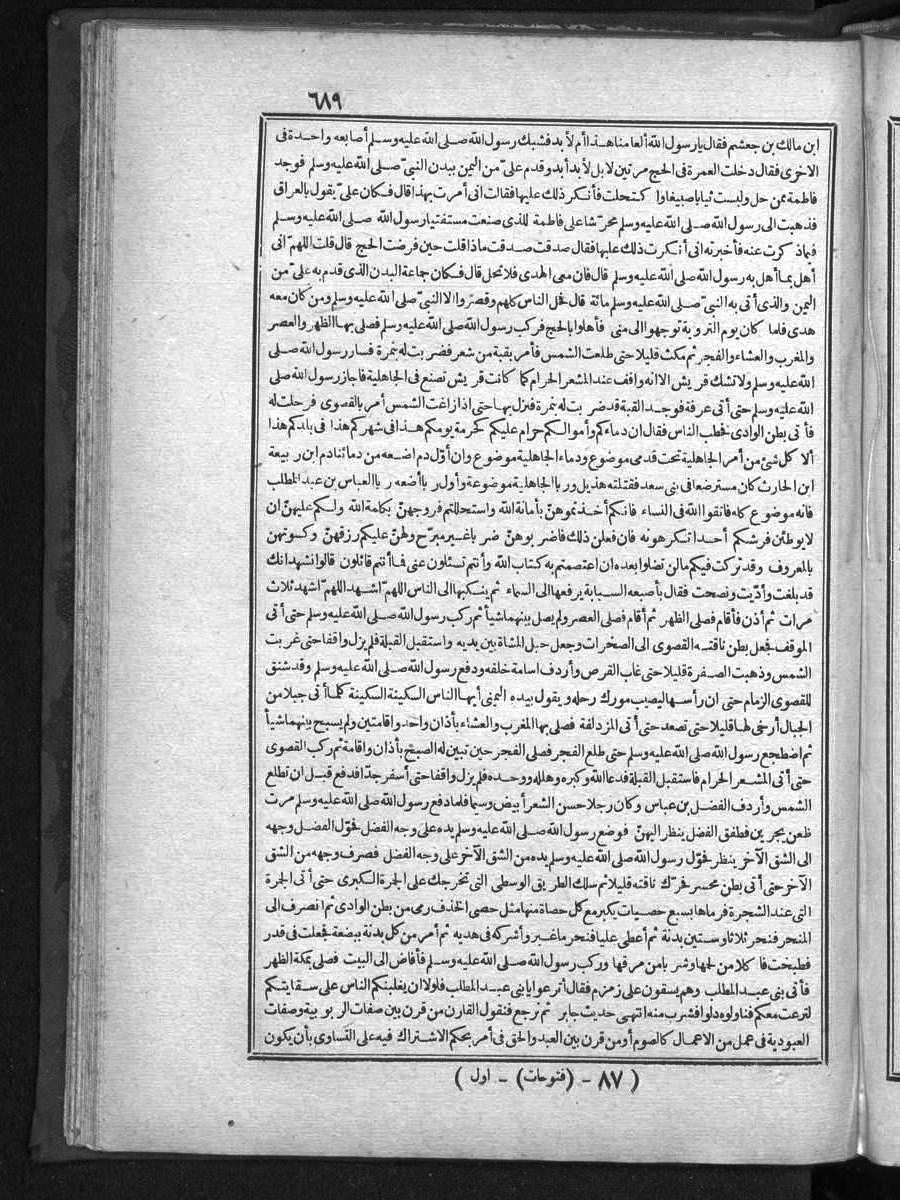 ٦٨٩
ابن مالك بن جعشم فقال يارسول الله ألعامنا هذا أم لأبد فشبك رسول الله صلى الله عليه وسلم أصابعه واحدة فى
الاخرى فقال دخلت العمرة فى الحج مرتين لا بل لأبد أبد وقدم علىّ من اليمن ببدن النبىّ صلى الله عليه وسلم فوجد
فاطمة ممن حل ولبست ثيابا صبيغا واكتحلت فأنكر ذلك عليها فقالت انى أمرت بهذا قال فكان علىّ يقول بالعراق
فذهبت الى رسول الله صلى الله عليه وسلم محرّشا على فاطمة للذى صنعت مستفتيا رسول الله صلى الله عليه وسلم
فيما ذكرت عنه فأخبرته انى أنكرت ذلك عليها فقال صدقت صدقت ماذا قلت حين فرضت الحج قال قلت اللهمّ انى
أهل بما أهل به رسول الله صلى الله عليه وسلم قال فان معى الهدى فلا تحل قال فكان جماعة البدن الذى قدم به علىّ من
اليمن والذى أتى به النبىّ صلى الله عليه وسلم مائة قال فحل الناس كلهم وقصروا الا النبىّ صلى الله عليه وسلم ومن كان معه
هدى فلما كان يوم التروية توجهوا الى منى فأهلوا بالحج فركب رسول الله صلى الله عليه وسلم فصلى بها الظهر والعصر
والمغرب والعشاء والفجر ثم مكث قليلا حتى طلعت الشمس فأمر بقبة من شعر فضربت له بنمرة فسار رسول الله صلى
الله عليه وسلم ولا تشك قريش الا انه واقف عند المشعر الحرام كما كانت قريش تصنع فى الجاهلية فاجاز رسول الله صلى
الله عليه وسلم حتى أتى عرفة فوجد القبة قد ضربت له بنمرة فنزل بها حتى اذا زاغت الشمس أمر بالقصوى فرحلت له
فأتى بطن الوادى فخطب الناس فقال ان دماءكم وأموالكم حرام عليكم كحرمة يومكم هذا فى شهركم هذا فى بلدكم هذا
ألا كل شئ من أمر الجاهلية تحت قدمى موضوع ودماء الجاهلية موضوع وان أوّل دم اضعه من دمائنا دم ابن ربيعة
ابن الحارث كان مسترضعا فى بنى سعد فقتلته هذيل وربا الجاهلية موضوعة وأول ربا أضعه ربا العباس بن عبد المطلب
فانه موضوع كله فاتقوا الله فى النساء فانكم أخذتموهنّ بأمانة الله واستحللتم فروجهنّ بكلمة الله ولكم عليهنّ ان
لا يوطئن فرشكم أحدا تكرهونه فان فعلن ذلك فاضربوهنّ ضربا غير مبرّح ولهنّ عليكم رزقهنّ وكسوتهن
بالمعروف وقد تركت فيكم ما لن تضلوا بعده ان اعتصمتم به كتاب الله وأنتم تسئلون عنى فما أنتم قائلون قالوا نشهد انك
قد بلغت وأدّيت ونصحت فقال بأصبعه السبابة يرفعها الى السماء ثم ينكبها الى الناس اللهمّ اشهد اللهمّ اشهد ثلاث
مرات ثم أذن فأقام فصلى الظهر ثم أقام فصلى العصر ولم يصل بينهما شيأ ثم ركب رسول الله صلى الله عليه وسلم حتى أتى
الموقف فجعل بطن ناقته القصوى الى الصخرات وجعل حبل المشاة بين يديه واستقبل القبلة فلم يزل واقفا حتى غربت
الشمس وذهبت الصفرة قليلا حتى غاب القرص وأردف اسامة خلفه ودفع رسول الله صلى الله عليه وسلم وقد شنق
للقصوى الزمام حتى ان رأسها ليصيب مورك رحله ويقول بيده اليمنى أيها الناس السكينة السكينة كلما أتى جبلا من
الجبال أرخى لها قليلا حتى تصعد حتى أتى المزدلفة فصلى بها المغرب والعشاء بأذان واحد واقامتين ولم يسبح بينهما شيأ
ثم اضطجع رسول الله صلى الله عليه وسلم حتى طلع الفجر فصلى الفجر حين تبين له الصبح بأذان واقامة ثم ركب القصوى
حتى أتى المشعر الحرام فاستقبل القبلة فدعا الله وكبره وهلله ووحده فلم يزل واقفا حتى أسفر جدّا فدفع قبل ان تطلع
الشمس وأردف الفضل بن عباس وكان رجلا حسن الشعر أبيض وسيما فلما دفع رسول الله صلى الله عليه وسلم مرت
ظعن يجرين فطفق الفضل ينظر اليهنّ فوضع رسول الله صلى الله عليه وسلم يده على وجه الفضل فحوّل الفضل وجهه
الى الشق الآخر ينظر فحوّل رسول الله صلى الله عليه وسلم يده من الشق الآخر على وجه الفضل فصرف وجهه من الشق
الآخر حتى أتى بطن محسر فحرّك ناقته قليلا ثم سلك الطريق الوسطى التى تخرجك على الجمرة الكبرى حتى أتى الجمرة
التى عند الشجرة فرماها بسبع حصيات يكبر مع كل حصاة منها مثل حصى الخذف رمى من بطن الوادى ثم انصرف الى
المنحر فنحر ثلاثا وستين بدنة ثم أعطى عليا فنحر ما غبر وأشركه فى هديه ثم أمر من كل بدنة ببضعة فجعلت فى قدر
فطبخت فأكلا من لحمها وشربا من مرقها وركب رسول الله صلى الله عليه وسلم فأفاض الى البيت فصلى بمكة الظهر
فأتى بنى عبد المطلب وهم يسقون على زمزم فقال أنزعوا يا بنى عبد المطلب فلولا ان يغلبنكم الناس على سقايتكم
لنزعت معكم فناولوه دلوا فشرب منه انتهى حديث جابر ثم رجع فنقول القارن من قرن بين صفات الربوبية وصفات
العبودية فى عمل من الاعمال كالصوم أو من قرن بين العبد والحق فى أمر بحكم الاشتراك فيه على التساوى بأن يكون
( ٨٧ - (فتوحات) - اول )